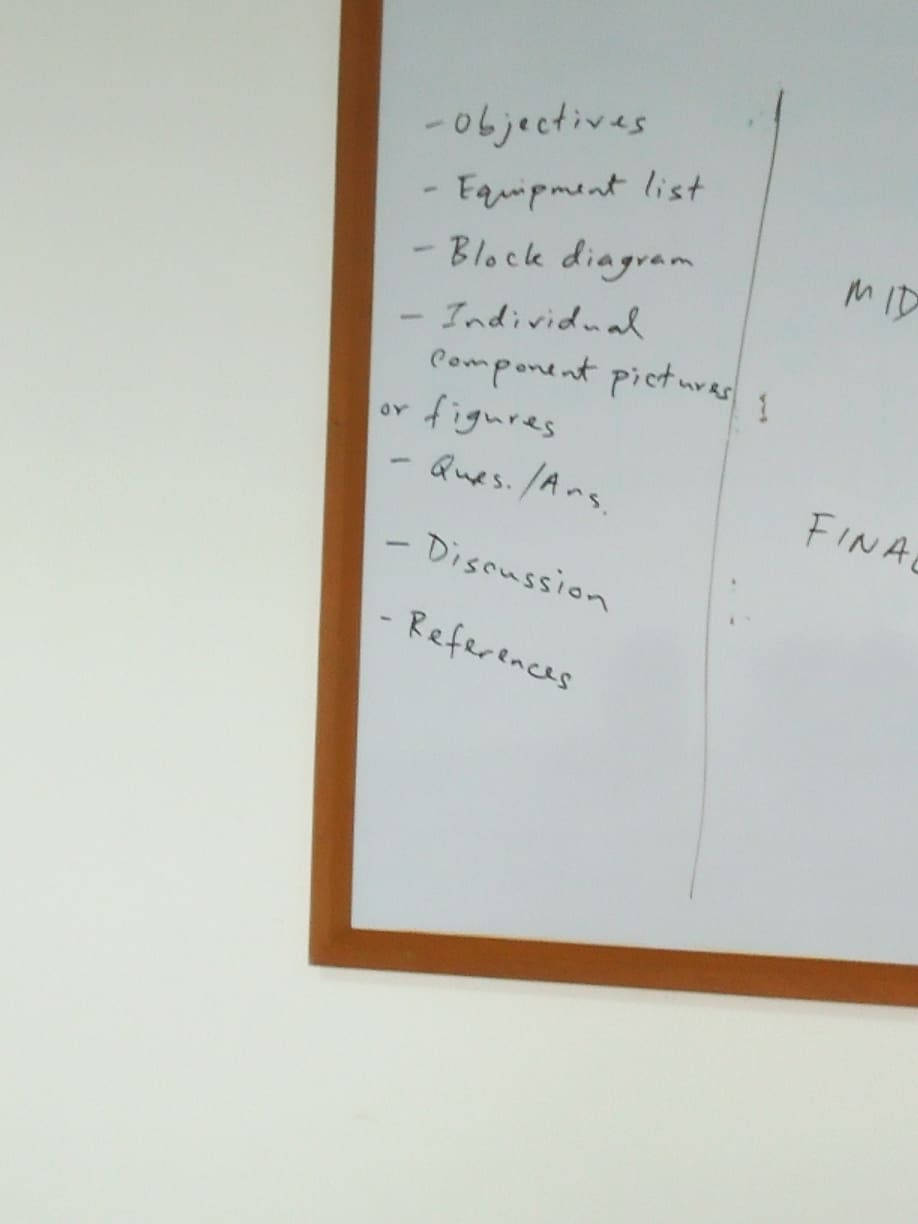 - Objectives
- Equipment list
- Block diagram
- Individual
component pictures
or figures
- Ques./Ans.
- Discussion
- References
MID
FINAL